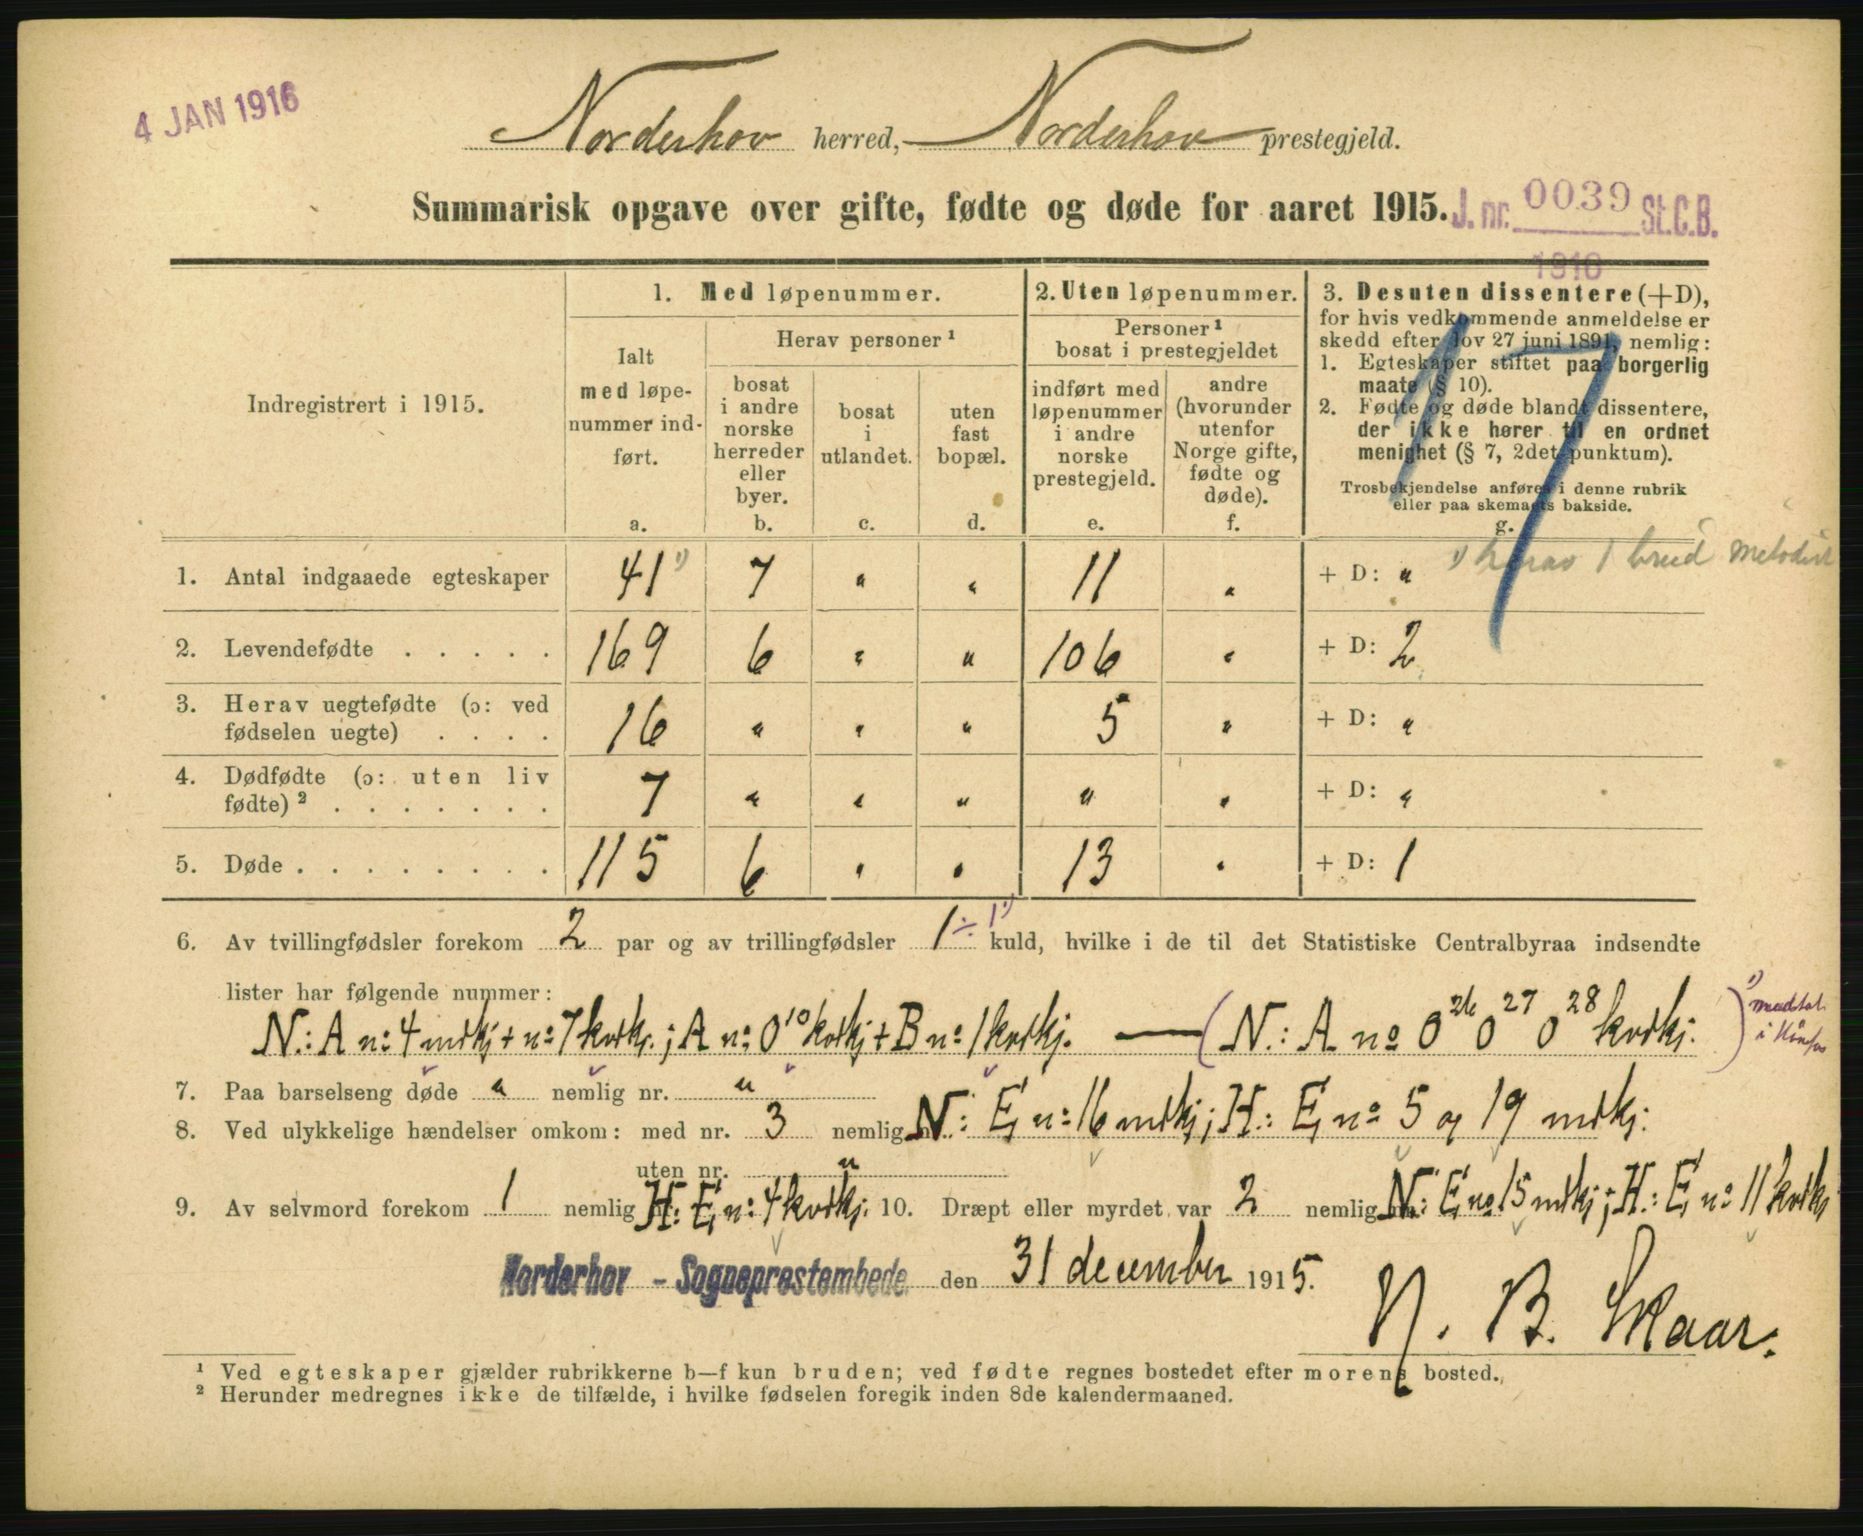 4 JAN 1916
Norderhov herred, Norderhov prestegjeld.
Summarisk opgave over gifte, fødte og døde for aaret 1915.
J. nr. 0039 St.C.B.
1916
17
Indregistrert i 1915.
1. Med løpenummer.
Ialt
med løpe-
nummer ind-
ført.
a.
Herav personer ¹
bosat
i andre
norske
herreder
eller
byer.
b.
bosat
i
utlandet.
c.
uten
fast
bopæl.
d.
2. Uten løpenummer.
Personer ¹
bosat i prestegjeldet
indført med
løpenummer
i andre
norske
prestegjeld.
e.
andre
(hvorunder
utenfor
Norge gifte,
fødte og
døde).
f.
3. Desuten dissentere (+D),
for hvis vedkommende anmeldelse er
skedd efter lov 27 juni 1891, nemlig:
1. Egteskaper stiftet paa borgerlig
maate (§ 10).
2. Fødte og døde blandt dissentere,
der ikke hører til en ordnet
menighet (§ 7, 2det punktum).
Trosbekjendelse anføres i denne rubrik
eller paa skemaets bakside.
g.
1. Antal indgaaede egteskaper 41 ¹) 7 " " 11 " + D: " ¹) herav 1 brud metodist
2. Levendefødte . . . . . 169 6 " " 106 " + D: 2
3. Herav uegtefødte (ɔ: ved
fødselen uegte) . . . . 16 " " " 5 " + D: "
4. Dødfødte (ɔ: uten liv
fødte) ² . . . . . . . 7 " " " " " + D: "
5. Døde . . . . . . . . 115 6 " " 13 " + D: 1
6. Av tvillingfødsler forekom 2 par og av trillingfødsler 1 ÷ 1 ¹) kuld, hvilke i de til det Statistiske Centralbyraa indsendte
lister har følgende nummer:
N.: A nº 4 mdkj + nº 7 kvdkj.; A nº 0¹⁰ kvdkj + B nº 1 kvdkj. — (N.: A nº 0²⁶ 0²⁷ 0²⁸ kvdkj.) ¹) medtat
i Hønefos
7. Paa barselseng døde " nemlig nr. "
8. Ved ulykkelige hændelser omkom: med nr. 3 nemlig N.: E, nº 16 mdkj; H.: E, nº 5 og 19 mdkj.
uten nr. "
9. Av selvmord forekom 1 nemlig H.: E, nº 4 kvdkj. 10. Dræpt eller myrdet var 2 nemlig N.: E, nº 15 mdkj; H.: E, nº 11 kvdkj
Norderhov - Sogneprestembede den 31 december 1915.
N. B. Skaar.
¹ Ved egteskaper gjælder rubrikkerne b—f kun bruden; ved fødte regnes bostedet efter morens bosted.
² Herunder medregnes ikke de tilfælde, i hvilke fødselen foregik inden 8de kalendermaaned.